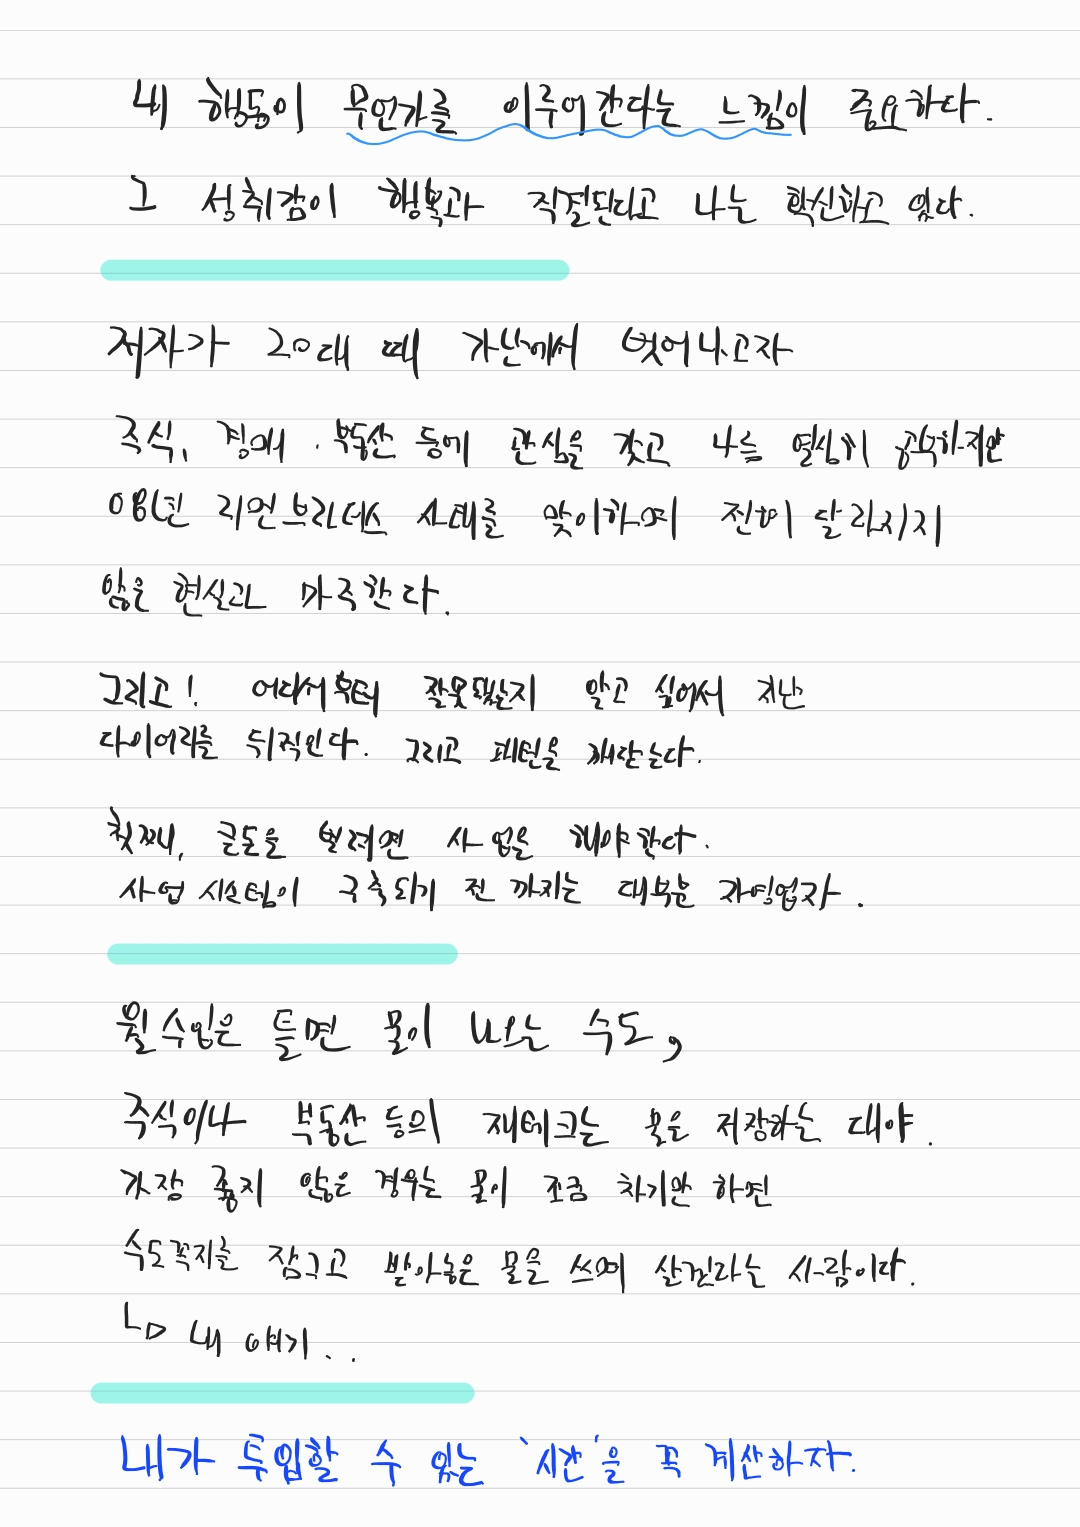 내 행동이 무언가를 이루어간다는 느낌이 중요하다.
그 성취감이 행복과 직결된다고 나는 확신하고 있다.
저자가 20대 때 가난에서 벗어나고자
주식, 경매, 부동산 등에 관심을 갖고 나름 열심히 공부하지만
08년 리먼브라더스 사태를 맞이하며 전혀 달라지지
않은 현실과 마주한다.
그리고! 어디서부터 잘못됐는지 알고 싶어서 지난
다이어리를 뒤적인다. 그리고 패턴을 깨닫는다.
첫째, 큰돈을 벌려면 사업을 해야한다.
사업 시스템이 구축되기 전 까지는 대부분 자영업자.
월 수입은 틀면 물이 나오는 수도,
주식이나 부동산 등의 재테크는 물을 저장하는 대야.
가장 좋지 않은 경우는 물이 조금 차기만 하면
수도꼭지를 잠그고 받아놓은 물을 쓰며 살겠라는 사람이다.
ㄴㅁ 내 얘기..
내가 투입할 수 있는 '시간'을 꼭 계산하자.